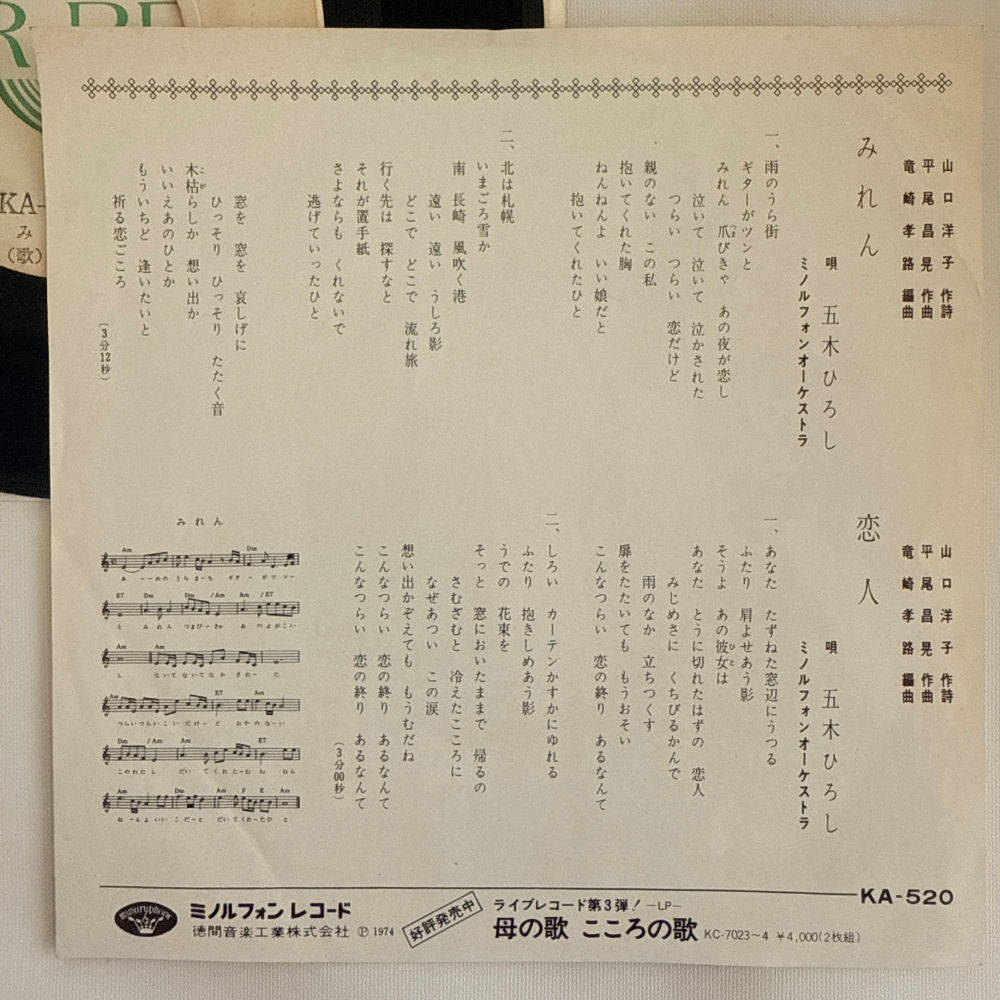 みれん
山口洋子 作詩
平尾昌晃 作曲
竜崎孝路 編曲
唄 五木ひろし
ミノルフォンオーケストラ
一、雨のうら街
ギターがツンと
みれん 爪びきゃ あの夜が恋し
泣いて 泣いて 泣かされた
つらい つらい 恋だけど
親のない この私
抱いてくれた胸
ねんねんよ いい娘だと
抱いてくれたひと
二、北は札幌
いまごろ雪か
南 長崎 風吹く港
遠い 遠い うしろ影
どこで どこで 流れ旅
行く先は 探すなと
それが置手紙
さよならも くれないで
逃げていったひと
窓を 窓を 哀しげに
ひっそり ひっそり たたく音
木枯らしか 想い出か
いいえあのひとか
もういちど 逢いたいと
祈る恋ごころ
(3分12秒)
恋人
山口洋子 作詩
平尾昌晃 作曲
竜崎孝路 編曲
唄 五木ひろし
ミノルフォンオーケストラ
一、あなた たずねた窓辺にうつる
ふたり 肩よせあう影
そうよ あの彼女は
あなた とうに切れたはずの 恋人
みじめさに くちびるかんで
雨のなか 立ちつくす
扉をたたいても もうおそい
こんなつらい 恋の終り あるなんて
二、しろい カーテンかすかにゆれる
ふたり 抱きしめあう影
うでの 花束を
そっと 窓においたままで 帰るの
さむざむと 冷えたこころに
なぜあつい この涙
想い出かぞえても もうむだね
こんなつらい 恋の終り あるなんて
こんなつらい 恋の終り あるなんて
(3分00秒)
みれん
KA-520
minoruphone
ミノルフォン レコード
徳間音楽工業株式会社 Ⓟ 1974
好評発売中
ライブレコード第3弾! −LP−
母の歌 こころの歌 KC-7023〜4 ¥4,000(2枚組)
KA-
み
(歌)